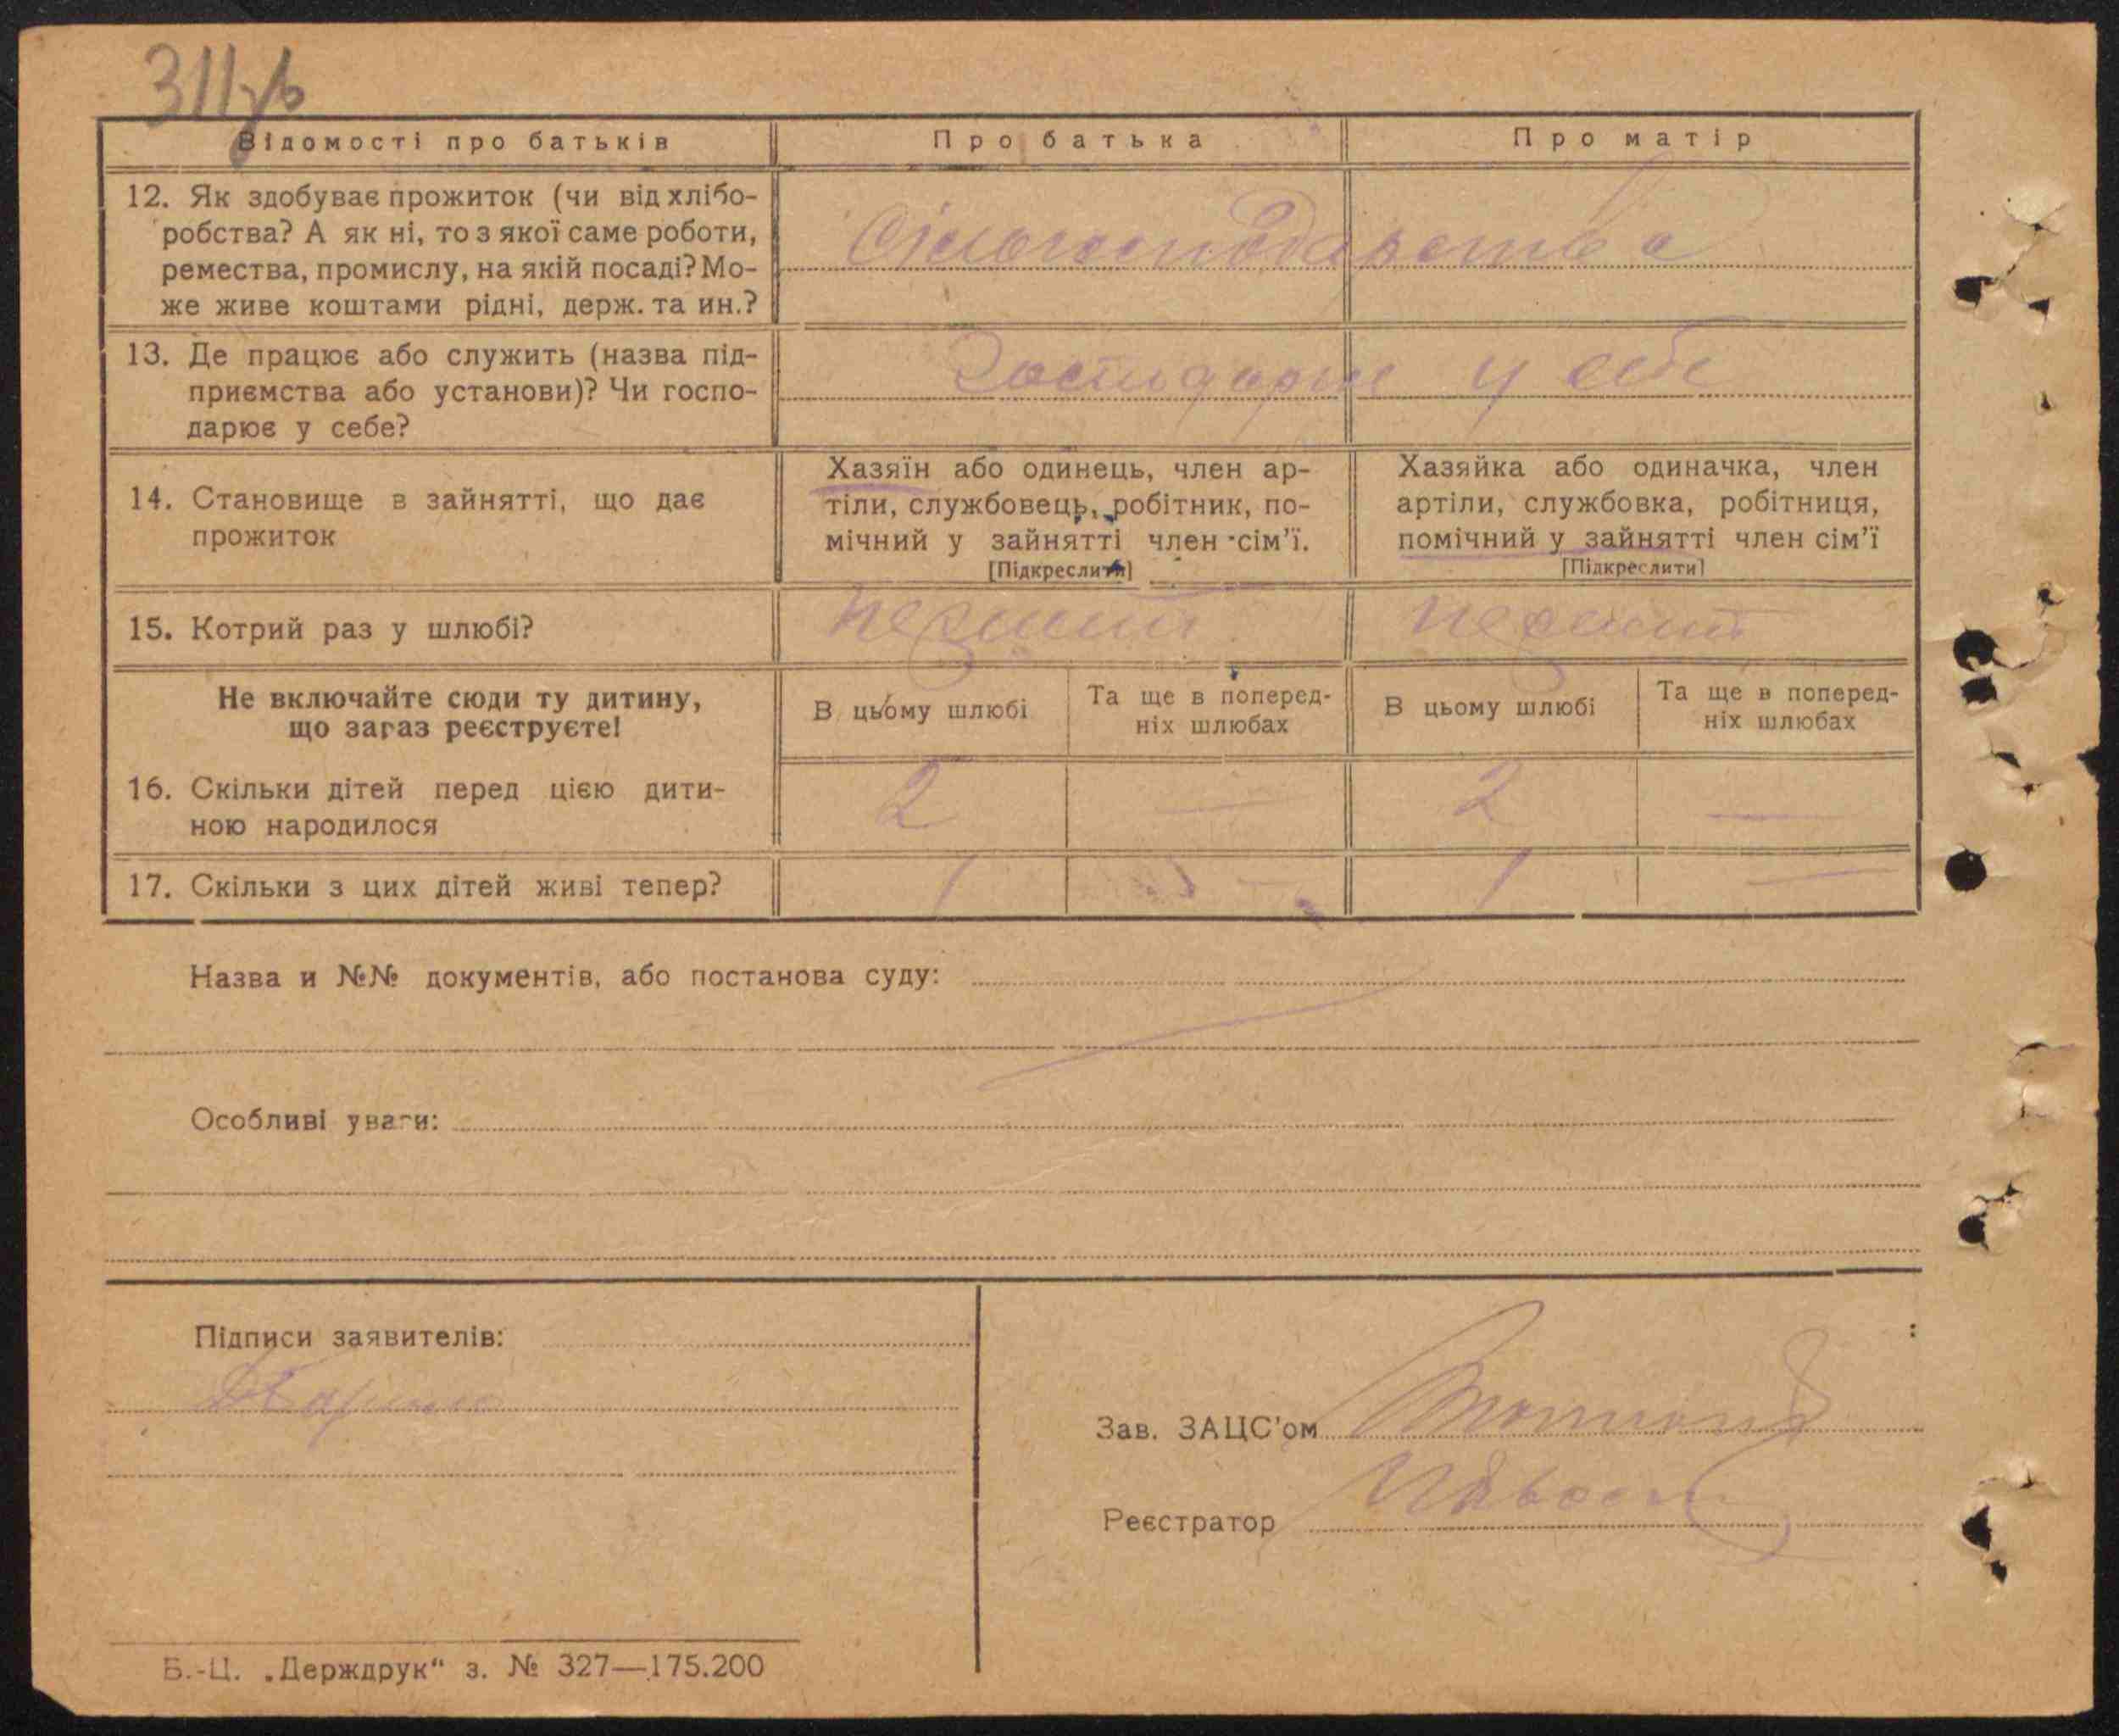 311зв
Відомості про батьків
Про батька
Про матір
12. Як здобуває прожиток (чи від хлібо-
робства? А як ні, то з якої саме роботи,
ремества, промислу, на якій посаді? Мо-
же живе коштами рідні, держ. та ин.?
13. Де працює або служить (назва під-
приємства або установи)? Чи госпо-
дарює у себе?
Господарює у себе
14. Становище в зайнятті, що дає
прожиток
Хазяїн або одинець, член ар-
тіли, службовець, робітник, по-
мічний у зайнятті член сім'ї.
[Підкреслити]
Хазяйка або одиначка, член
артіли, службовка, робітниця,
помічний у зайнятті член сім'ї
[Підкреслити]
15. Котрий раз у шлюбі?
Не включайте сюди ту дитину,
що загаз реєструєте!
В цьому шлюбі
Та ще в поперед-
ніх шлюбах
В цьому шлюбі
Та ще в поперед-
ніх шлюбах
16. Скільки дітей перед цією дити-
ною народилося
2 — 2 —
17. Скільки з цих дітей живі тепер?
1 — 1 —
Назва и №№ документів, або постанова суду:
Особливі уваги:
Підписи заявителів:
Зав. ЗАЦС'ом
Реєстратор
Б.-Ц. „Держдрук“ з. № 327—175.200